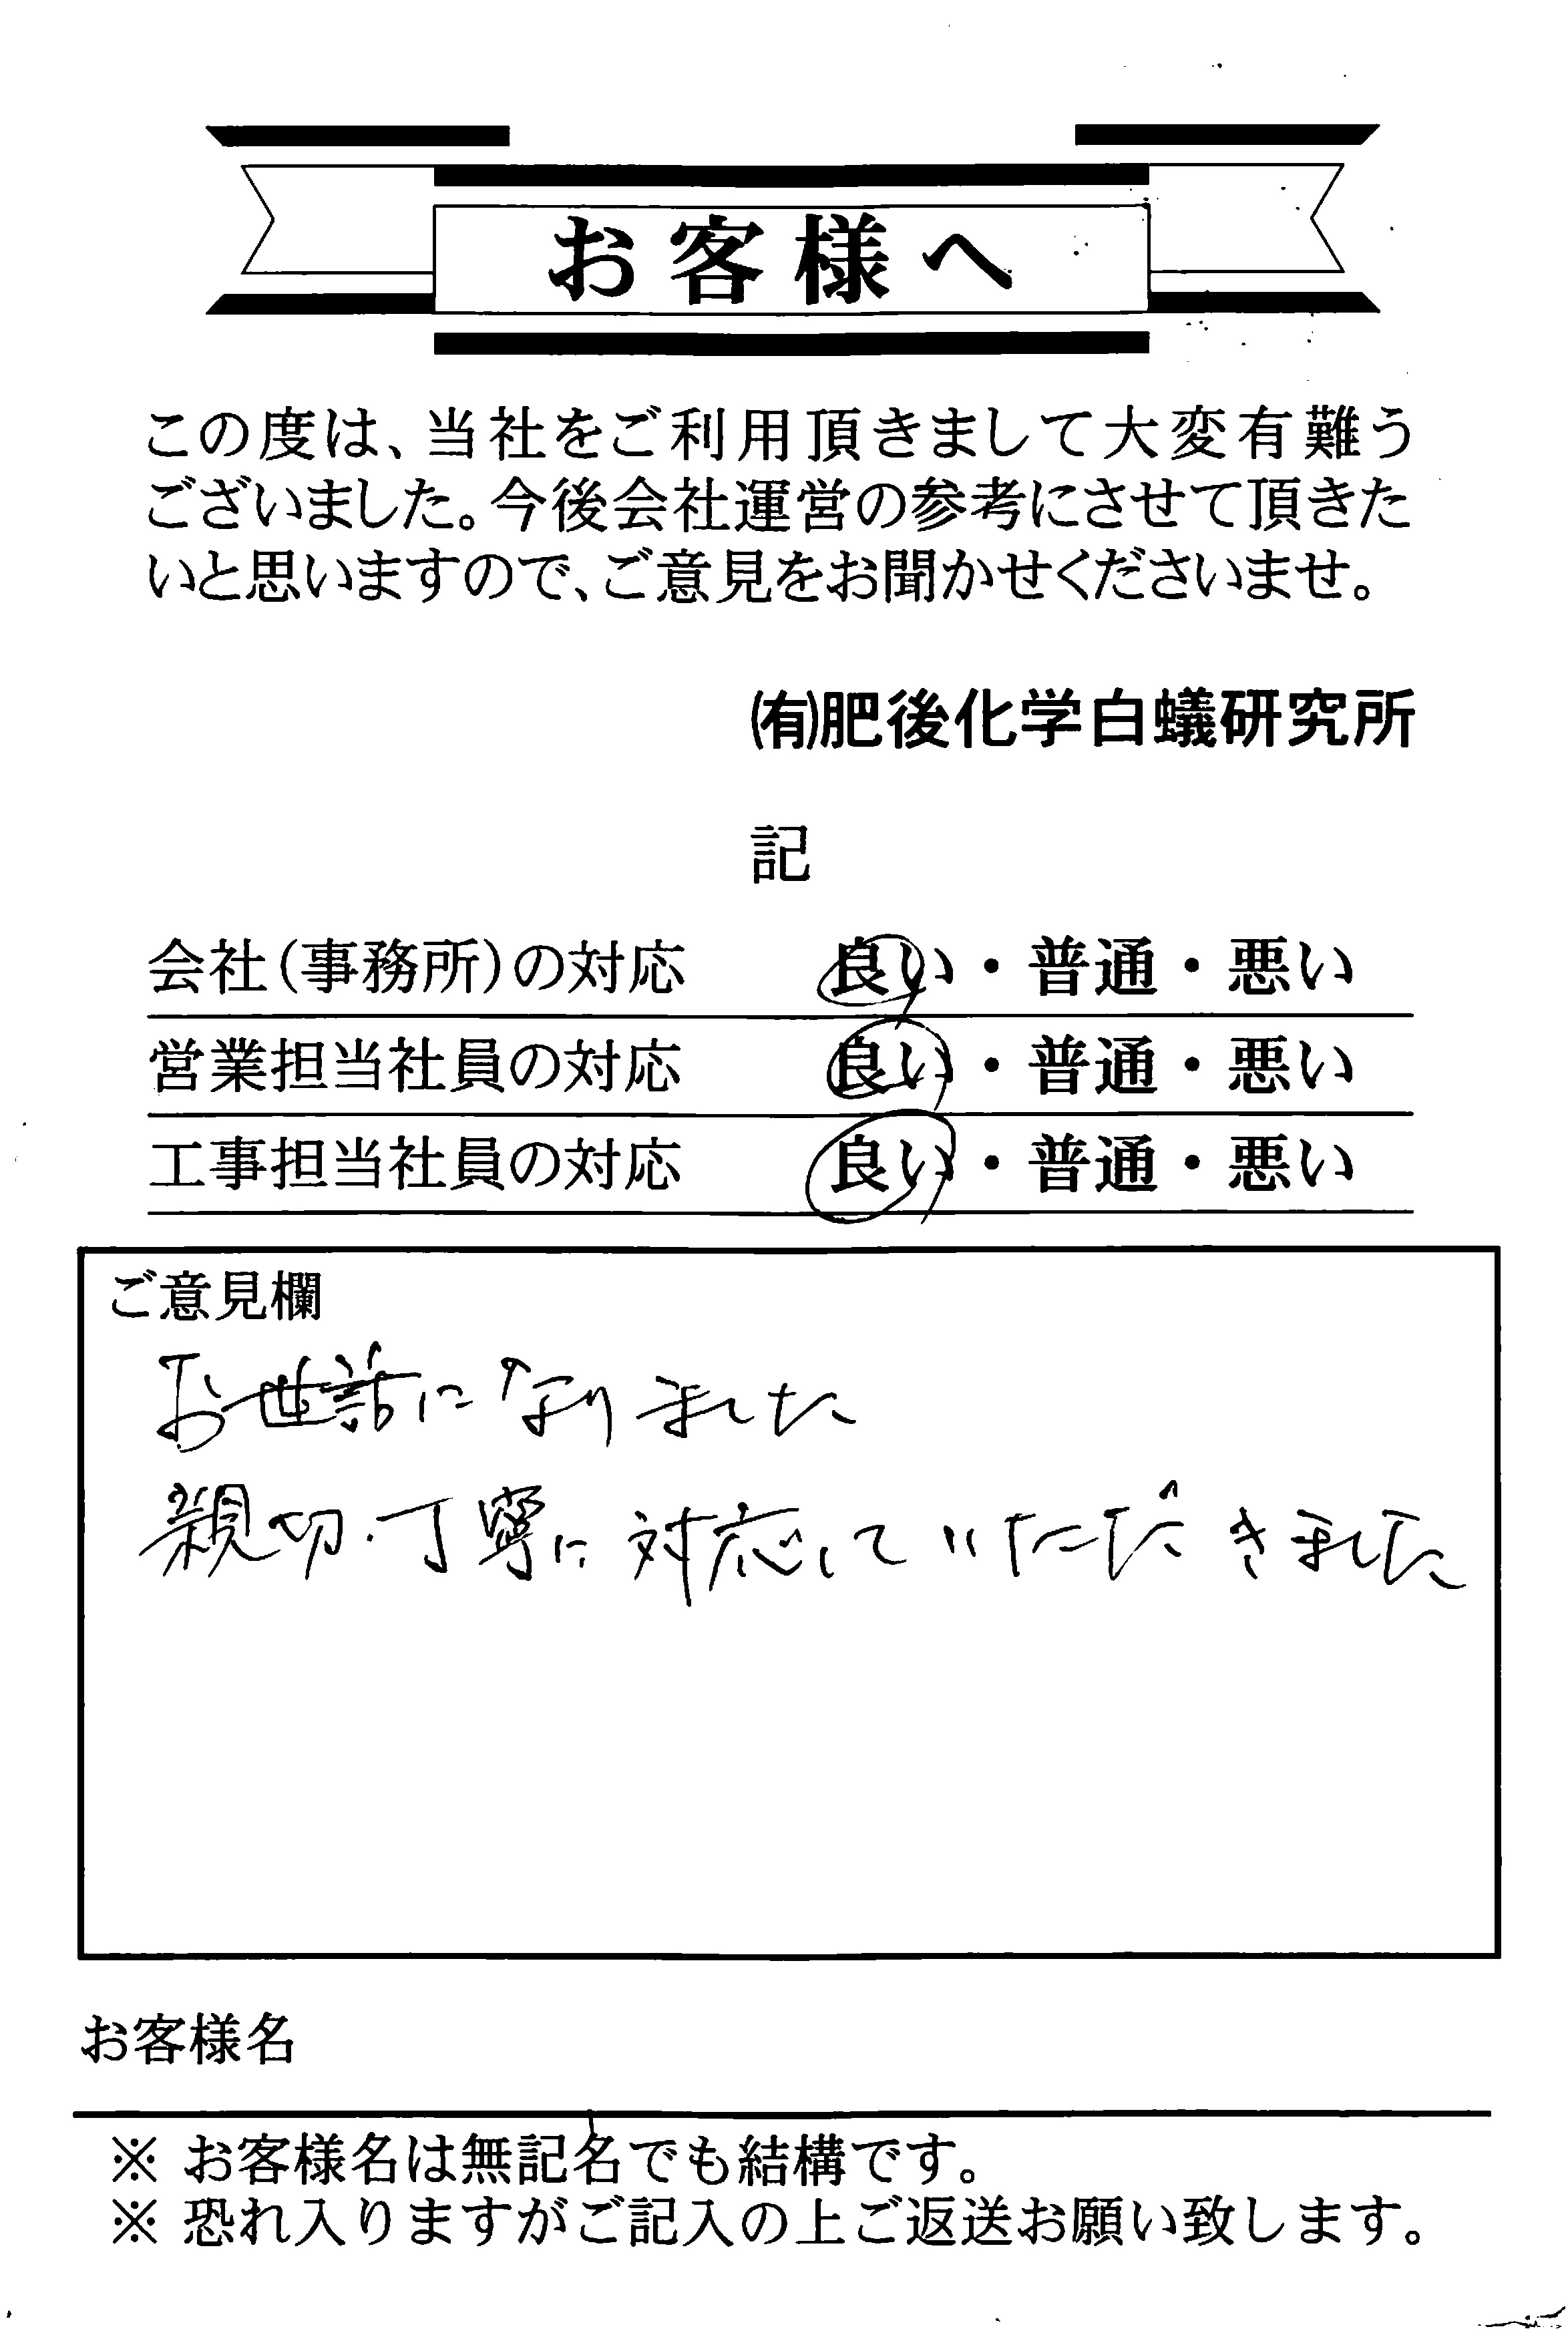 お客様へ
この度は、当社をご利用頂きまして大変有難う
ございました。今後会社運営の参考にさせて頂きた
いと思いますので、ご意見をお聞かせくださいませ。
㈲肥後化学白蟻研究所
記
会社(事務所)の対応 良い・普通・悪い
営業担当社員の対応 良い・普通・悪い
工事担当社員の対応 良い・普通・悪い
ご意見欄
お世話になりました
親切・丁寧に対応していただきました
お客様名
※ お客様名は無記名でも結構です。
※ 恐れ入りますがご記入の上ご返送お願い致します。